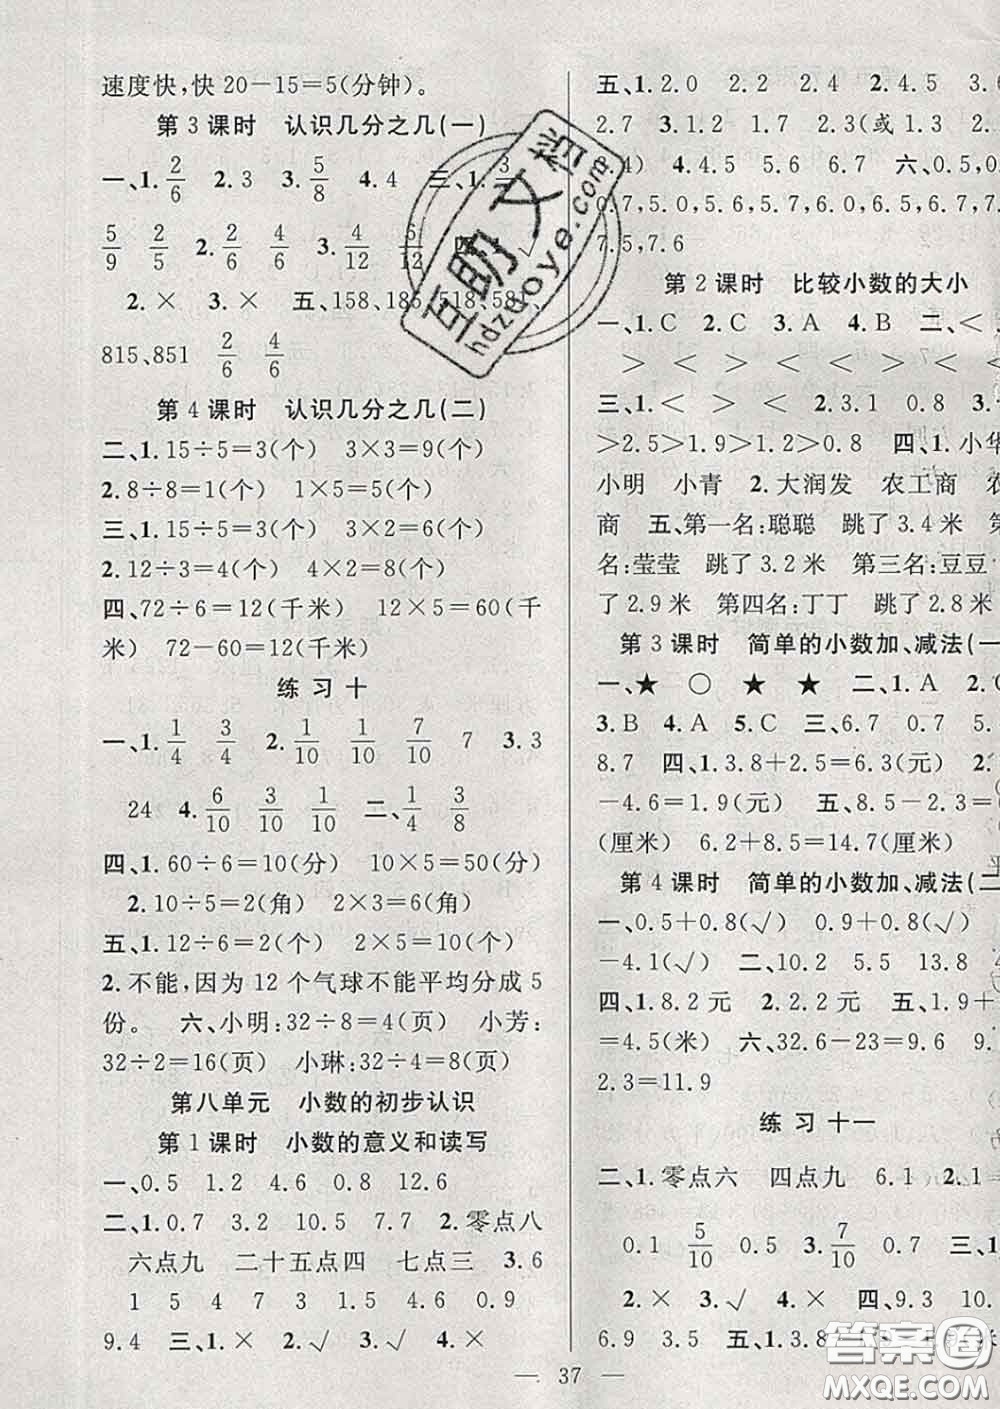 速度快,快20-15=5(分钟)。
第3课时 认识几分之几(一)
一、1. 2/6 2.3 3. 5/8 4.4 三、1. 3/
5/9 2/5 2. 2/6 4/6 3. 4/12 6/12 √
2.× 3.× 五、158、185、518、58
815、851 2/6 4/6
第4课时 认识几分之几(二)
二、1.15÷5=3(个) 3×3=9(个)
2.8÷8=1(个) 1×5=5(个)
三、1.15÷5=3(个) 3×2=6(个)
2.12÷3=4(个) 4×2=8(个)
四、72÷6=12(千米) 12×5=60(千
米) 72-60=12(千米)
练习十
一、1. 1/4 3/4 2. 1/10 1/10 7/10 7 3.3
24 4. 6/10 3/10 1/10 二、1/4 3/8
四、1.60÷6=10(分) 10×5=50(分)
2.10÷5=2(角) 2×3=6(角)
五、1.12÷6=2(个) 2×5=10(个)
2.不能,因为12个气球不能平均分成5
份。 六、小明:32÷8=4(页) 小芳:
32÷2=16(页) 小琳:32÷4=8(页)
第八单元 小数的初步认识
第1课时 小数的意义和读写
一、0.5 1.2 4.6 0.8 12.6
二、1.0.7 3.2 10.5 7.7 2.零点八
六点九 二十五点四 七点三 3.6
1 5 4 7 3 1.5 4.6 0.9
9.4 三、1.× 2.√ 3.√ 4.×
五、1.2.0 2.2 2.4 2.4.5 3.6
2.7 3.1.2 1.7 2.3(或1.3 2.
.4) 4.4.5 5.6 6.7 六、0.5,0.
0.7,5.0,5.5,5.6,5.7,6.0,6.5,6.6,6.7,7.
7.5,7.6
第2课时 比较小数的大小
一、1.C 2.C 3.A 4.B 二、<
> < > < > < > <
三、1.< > < 2.3.1 0.8 3.
>2.5>1.9>1.2>0.8 四、1.小华
小明 小青 2.大润发 农工商 农
商 五、第一名:聪聪 跳了3.4米
名:莹莹 跳了3.2米 第三名:豆豆
了2.9米 第四名:丁丁 跳了2.8米
第3课时 简单的小数加、减法(一
一、★ ○ ★ ★ 二、1.A 2.C
3.B 4.A 5.C 三、6.7 0.7 5.
8.7 四、1.3.8+2.5=6.3(元)
-4.6=1.9(元) 五、8.5-2.3=6
(厘米) 6.2+8.5=14.7(厘米)
第4课时 简单的小数加、减法(二
一、0.5+0.8(√) 0.9+0.8(√)
-4.1(√) 二、10.2 5.5 13.8
四、1.8.2元 2.2.2元 五、1.9+
=4.5(米) 六、32.6-23=9.6
2.3=11.9
练习十一
二、1.零点六 四点九 6.1 2.1=
0.1 5/10 0.5 3. 7/10 0.7 三、1.
2.× 3.√ 4.× 四、9.3 10.
6.9 3.5 五、1.3.8 米
— 37 —
互助文档
hdzuoye.com
答案圈
MXQE.COM